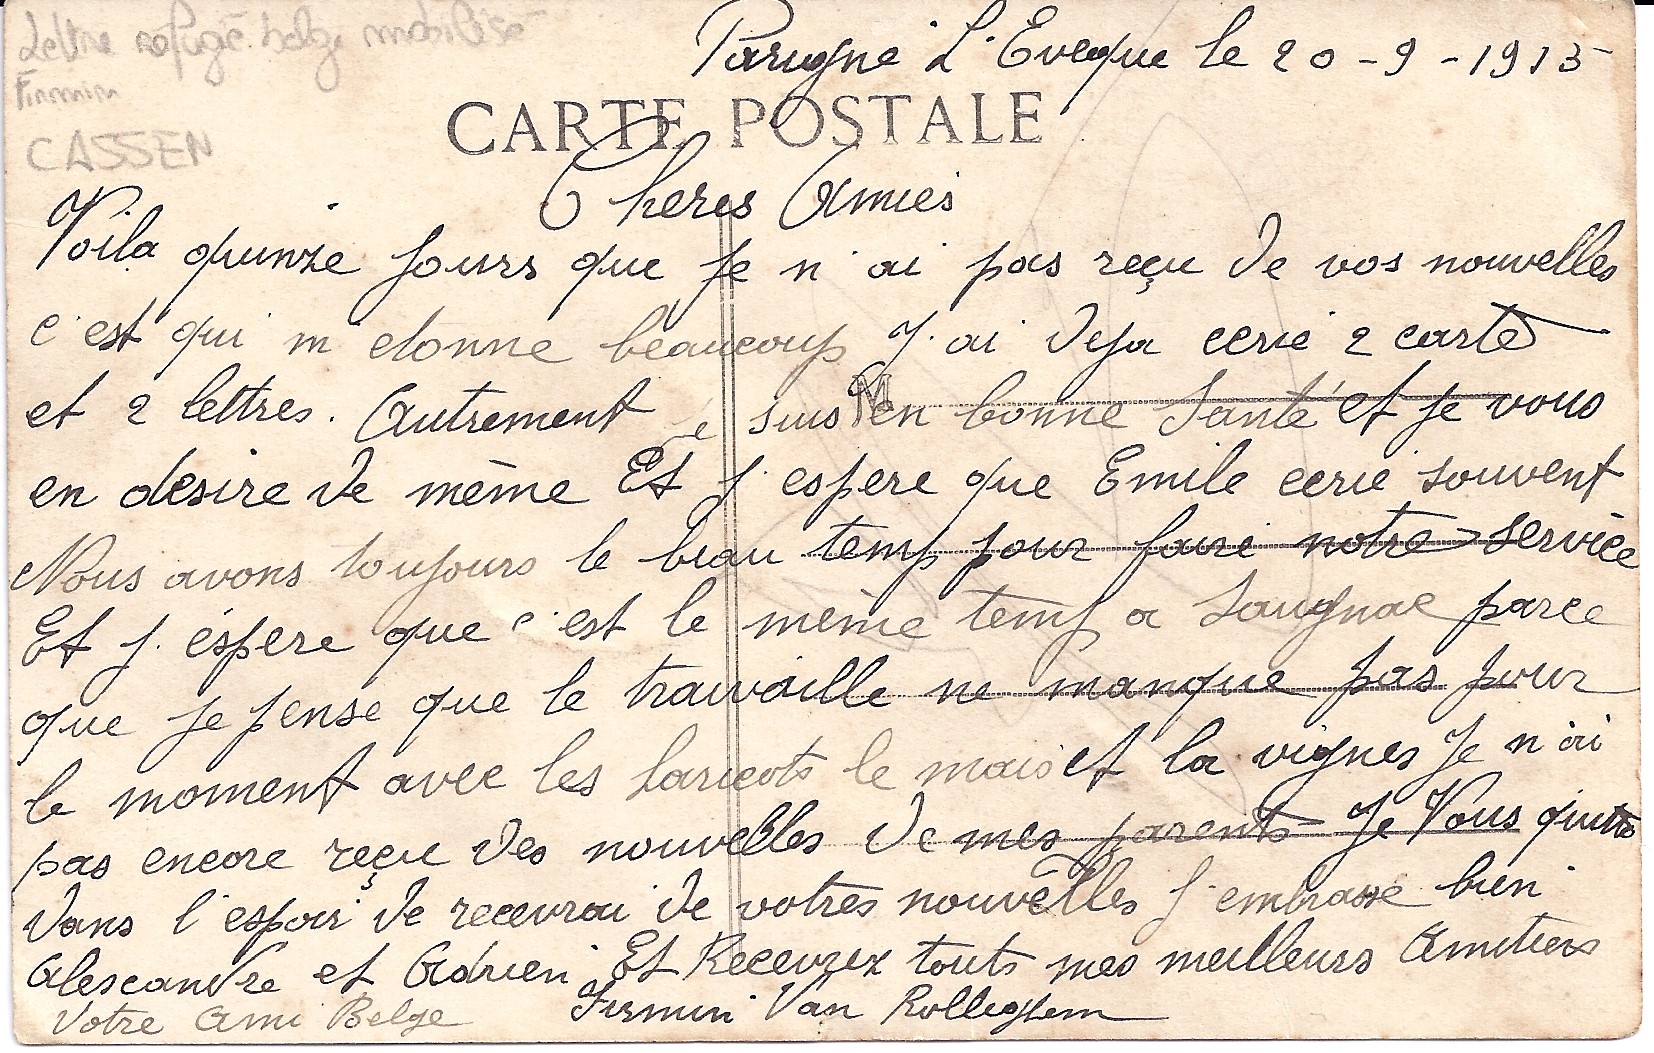 Lettre refugé belge mobilisé
Firmin
CASSEN
Parigné L'Eveque le 20-9-1915
CARTE POSTALE
Cheres Amies
Voila quinze jours que je n'ai pas reçu de vos nouvelles
c'est qui m etonne beaucoup J'ai deja ecrie 2 carte
et 2 lettres. Autrement je suis en bonne Santé et je vous
M
en desire de même Et j'espere que Emile ecrie souvent
Nous avons toujours le beau temp pour faire notre service
Et j'éspere que c'est le même temp a Saugnac parce
que je pense que le travaille ne manque pas pour
le moment avec les haricots le mais et la vignes Je n'ai
pas encore reçu des nouvelles de mes parents Je Vous quitte
dans l'espoir de recevrai de votres nouvelles J'embrasse bien
Alescandre et Adrien Et Recevrez touts mes meilleurs Amitiers
Votre Ami Belge Firmin Van Rolleghem